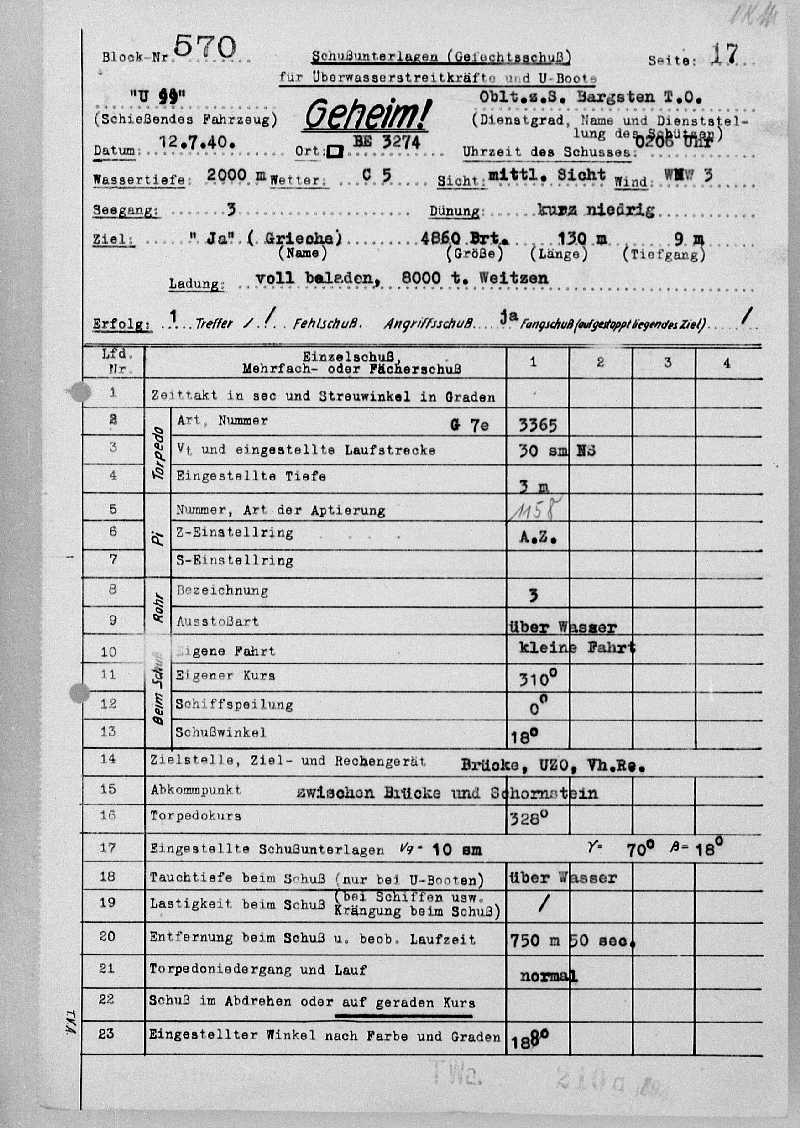 Block-Nr. 570 Schußunterlagen (Gefechtsschuß) Seite: 17
für Überwasserstreitkräfte und U-Boote
"U 99" Geheim! Oblt.z.S. Bargsten T.O.
(Schießendes Fahrzeug) (Dienstgrad, Name und Dienststel-
lung des Schützen)
Datum: 12.7.40. Ort: BE 3274 Uhrzeit des Schusses: 0206 Uhr
Wassertiefe: 2000 m Wetter: C 5 Sicht: mittl. Sicht Wind: WNW 3
Seegang: 3 Dünung: kurz niedrig
Ziel: " Ja" ( Grieche) 4860 Brt. 130 m 9 m
(Name) (Größe) (Länge) (Tiefgang)
Ladung: voll beladen, 8000 t. Weitzen
Erfolg: 1 Treffer / / Fehlschuß. Angriffsschuß ja Fangschuß (aufgestoppt liegendes Ziel) /
Lfd. Nr. Einzelschuß, Mehrfach- oder Fächerschuß 1 2 3 4
1 Zeittakt in sec und Streuwinkel in Graden
Torpedo
2 Art, Nummer G 7e 3365
3 Vt und eingestellte Laufstrecke 30 sm NS
4 Eingestellte Tiefe 3 m
Pi
5 Nummer, Art der Aptierung 1158
6 Z-Einstellring A.Z.
7 S-Einstellring
Rohr
8 Bezeichnung 3
9 Ausstoßart über Wasser
Beim Schuß
10 Eigene Fahrt kleine Fahrt
11 Eigener Kurs 310°
12 Schiffspeilung 0°
13 Schußwinkel 18°
14 Zielstelle, Ziel- und Rechengerät Brücke, UZO, Vh.Re.
15 Abkommpunkt zwischen Brücke und Schornstein
16 Torpedokurs 328°
17 Eingestellte Schußunterlagen Vg= 10 sm γ= 70° β= 18°
18 Tauchtiefe beim Schuß (nur bei U-Booten) über Wasser
19 Lastigkeit beim Schuß (bei Schiffen usw. Krängung beim Schuß) /
20 Entfernung beim Schuß u. beob. Laufzeit 750 m 50 sec.
21 Torpedoniedergang und Lauf normal
22 Schuß im Abdrehen oder auf geraden Kurs
23 Eingestellter Winkel nach Farbe und Graden 18°
T.V.A.
TWa.